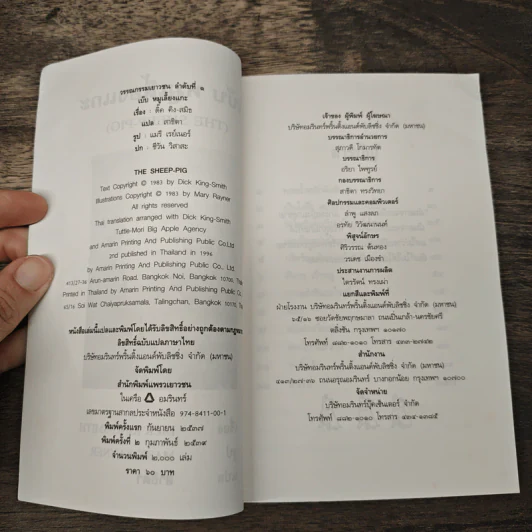 วรรณกรรมเยาวชน ลำดับที่ ๑
เบ๊บ หมูเลี้ยงแกะ
เรื่อง : ดิ๊ค คิง-สมิธ
แปล : สาธิตา
รูป : แมรี่ เรย์เนอร์
ปก : ชีวัน วิสาสะ
THE SHEEP-PIG
Text Copyright © 1983 by Dick King-Smith
Illustrations Copyright © 1983 by Mary Rayner
All rights reserved
Thai translation arranged with Dick King-Smith
Tuttle-Mori Big Apple Agency
and Amarin Printing And Publishing Public Co.,Ltd
2nd published in Thailand in 1996
by Amarin Printing And Publishing Public Co., Ltd.
413/27-36 Arun-amarin Road, Bangkok Noi, Bangkok 10700,
Printed in Thailand by Amarin Printing And Publishing Public Co.
65/16 Soi Wat Chaiyapruksamala, Talingchan, Bangkok 10170,
หนังสือเล่มนี้แปลและพิมพ์โดยได้รับลิขสิทธิ์อย่างถูกต้องตามกฎหมาย
ลิขสิทธิ์ฉบับแปลภาษาไทย
บริษัทอมรินทร์พริ้นติ้งแอนด์พับลิชชิ่ง จำกัด (มหาชน)
จัดพิมพ์โดย
สำนักพิมพ์แพรวเยาวชน
ในเครือ อมรินทร์
เลขมาตรฐานสากลประจำหนังสือ 974-8411-00-1
พิมพ์ครั้งแรก กันยายน ๒๕๓๗
พิมพ์ครั้งที่ ๒ กุมภาพันธ์ ๒๕๓๙
จำนวนพิมพ์ ๒,๐๐๐ เล่ม
ราคา ๖๐ บาท
เจ้าของ ผู้พิมพ์ ผู้โฆษณา
บริษัทอมรินทร์พริ้นติ้งแอนด์พับลิชชิ่ง จำกัด (มหาชน)
บรรณาธิการอำนวยการ
สุภาวดี โกมารทัต
บรรณาธิการ
อริยา ไพฑูรย์
กองบรรณาธิการ
สาธิตา ทรงวิทยา
ศิลปกรรมและคอมพิวเตอร์
ลำพู แสงลภ
อรทัย วิวัฒนานนท์
พิสูจน์อักษร
ศิริวรรณ ต้นทอง
วรเดช เมืองขำ
ประสานงานการผลิต
ไตรรัตน์ ทรงเผ่า
แยกสีและพิมพ์ที่
ฝ่ายโรงงาน บริษัทอมรินทร์พริ้นติ้งแอนด์พับลิชชิ่ง จำกัด (มหาชน)
๖๕/๑๖ ซอยวัดชัยพฤกษมาลา ถนนปิ่นเกล้า-นครชัยศรี
ตลิ่งชัน กรุงเทพฯ ๑๐๑๗๐
โทรศัพท์ ๘๘๒-๑๐๑๐ โทรสาร
สำนักงาน
บริษัทอมรินทร์พริ้นติ้งแอนด์พับลิชชิ่ง จำกัด (มหาชน)
๔๑๓/๒๗-๓๖ ถนนอรุณอมรินทร์ บางกอกน้อย กรุงเทพฯ ๑๐๗๐๐
จัดจำหน่าย
บริษัทอมรินทร์บุ๊คเซ็นเตอร์ จำกัด
โทรศัพท์ ๘๘๒-๑๐๑๐ โทรสาร